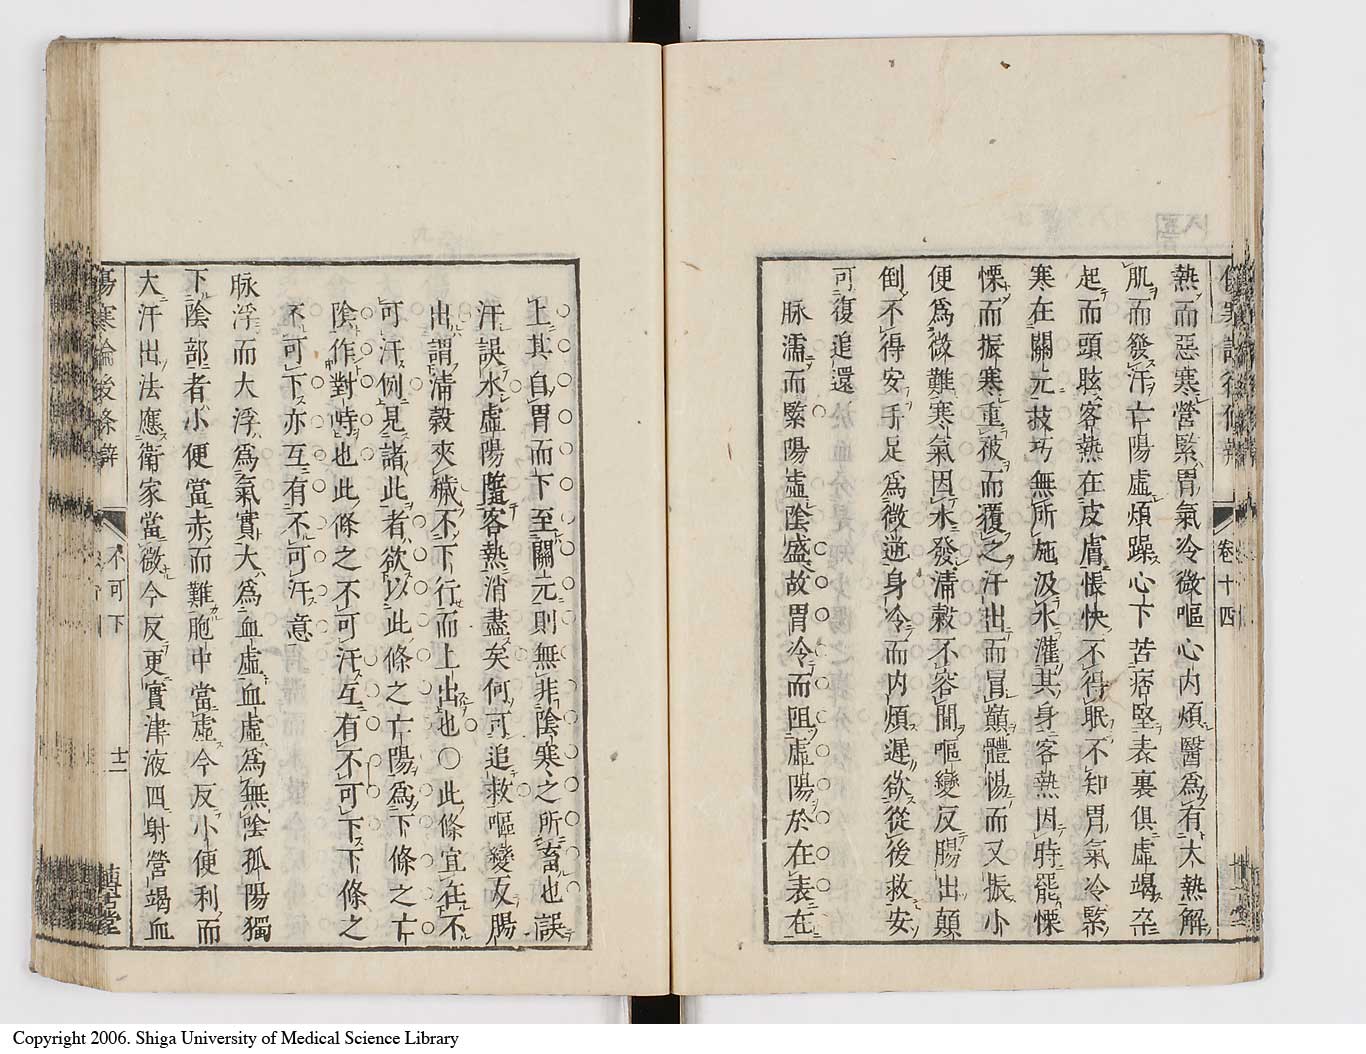 熱而惡寒營緊胃氣冷微嘔心内煩醫爲有大熱解
肌而發汗亡陽虛煩躁心下苦痞堅表裏俱虛竭卒
起而頭眩客熱在皮膚悵怏不得眠不知胃氣冷緊
寒在關元技巧無所施汲水灌其身客熱因時罷慄
慄而振寒重被而覆之汗出而冒巓體惕而又振小
便爲微難寒氣因水發淸穀不容間嘔變反腸出顛
倒不得安手足爲微逆身冷而内煩遲欲從後救安
可復追還
脉濡而緊陽虛陰盛故胃冷而阻虛陽於在表在
卷十四
上其自胃而下至關元則無非陰寒之所畜也誤
汗誤水虛陽隨客熱消盡矣何可追救嘔變反腸
出謂淸穀夾穢不下行而上出也○此條宜在不
可汗例見諸此者欲以此條之亡陽爲下條之亡
陰作對峙也此條之不可汗互有不可下下條之
不可下亦互有不可汗意
脉浮而大浮爲氣實大爲血虛血虛爲無陰孤陽獨
下陰部者小便當赤而難胞中當虛今反小便利而
大汗出法應衛家當微今反更實津液四射營竭血
傷寒論後條辯
不可下
十二
Copyright 2006. Shiga University of Medical Science Library